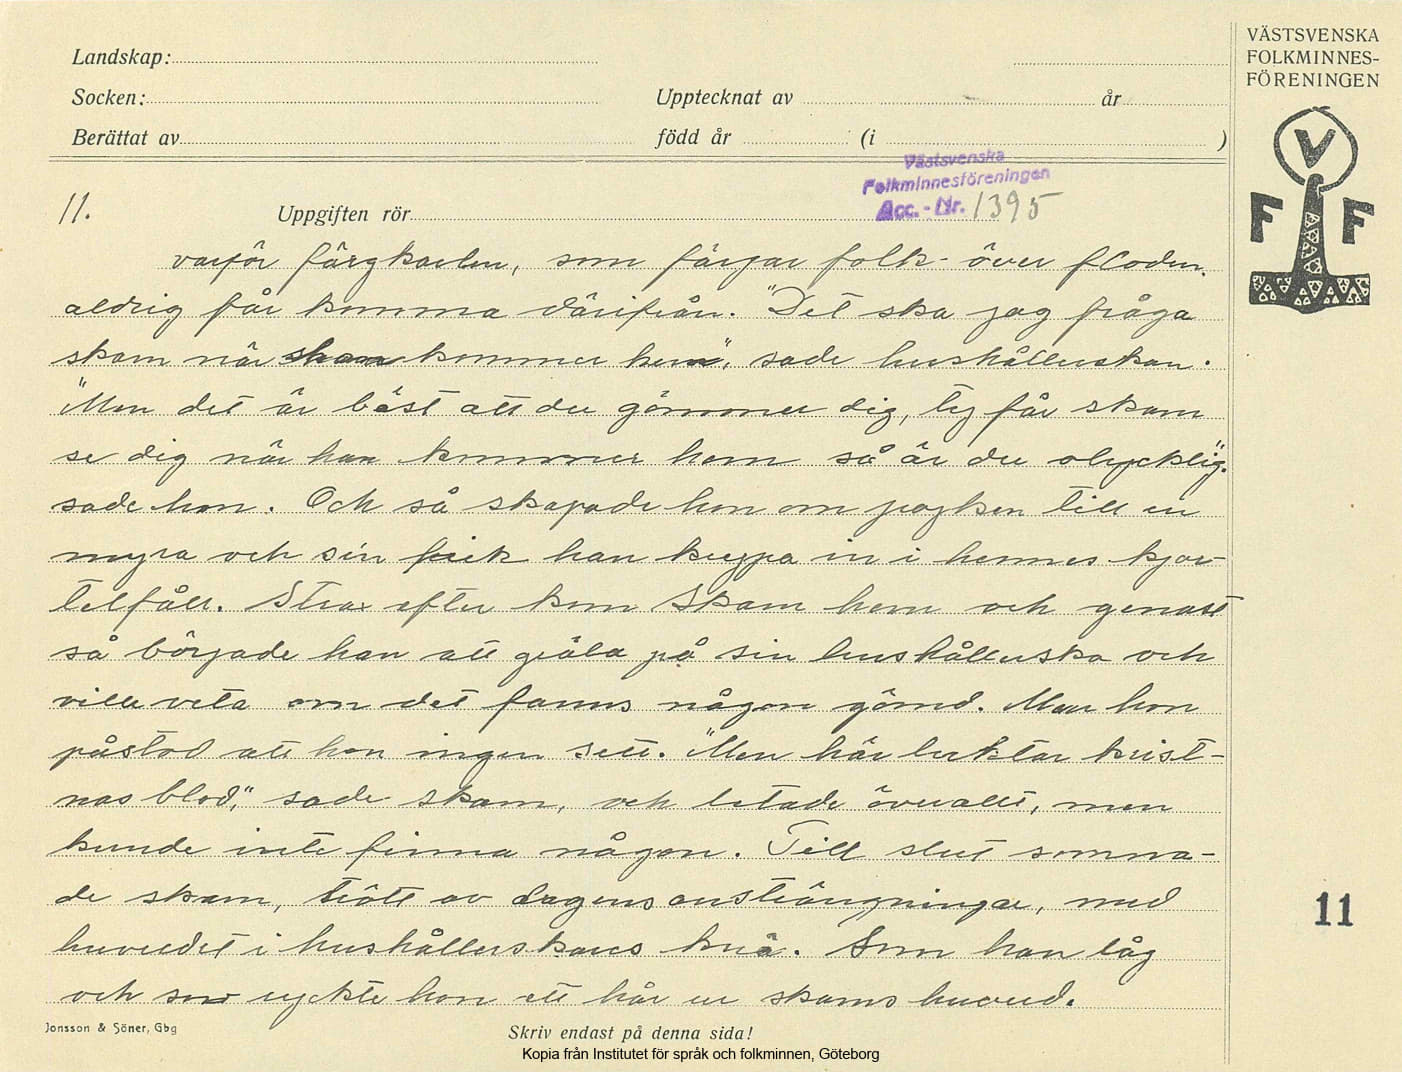 VÄSTSVENSKA
FOLKMINNES-
FÖRENINGEN
V
F F
Landskap:
Socken: Upptecknat av år
Berättat av född år (i )
Västsvenska
Folkminnesföreningen
Acc.-Nr. 1395
11. Uppgiften rör
varför färgkarlen, som färjar folk över floden,
aldrig får komma därifrån. "Det ska jag fråga
skam när skam kommer hem", sade hushållerskan.
"Men det är bäst att du gömmer dig, ty får skam
se dig när han kommer hem så är du olycklig",
sade hon. Och så skapade hon om pojken till en
myra och sin fick han krypa in i hennes kjor-
telfåll. Strax efter kom Skam hem och genast
så började han att gräla på sin hushållerska och
ville veta om det fanns någon gömd. Men hon
påstod att hon ingen sett. "Men här luktar krist-
nas blod," sade skam, och letade överallt, men
kunde inte finna någon. Till slut somna-
de skam, trött av dagens ansträngningar, med
huvudet i hushållerskans knä. Som han låg
och sov ryckte hon ett hår ur skams huvud.
11
Jonsson & Söner, Gbg
Skriv endast på denna sida!
Kopia från Institutet för språk och folkminnen, Göteborg